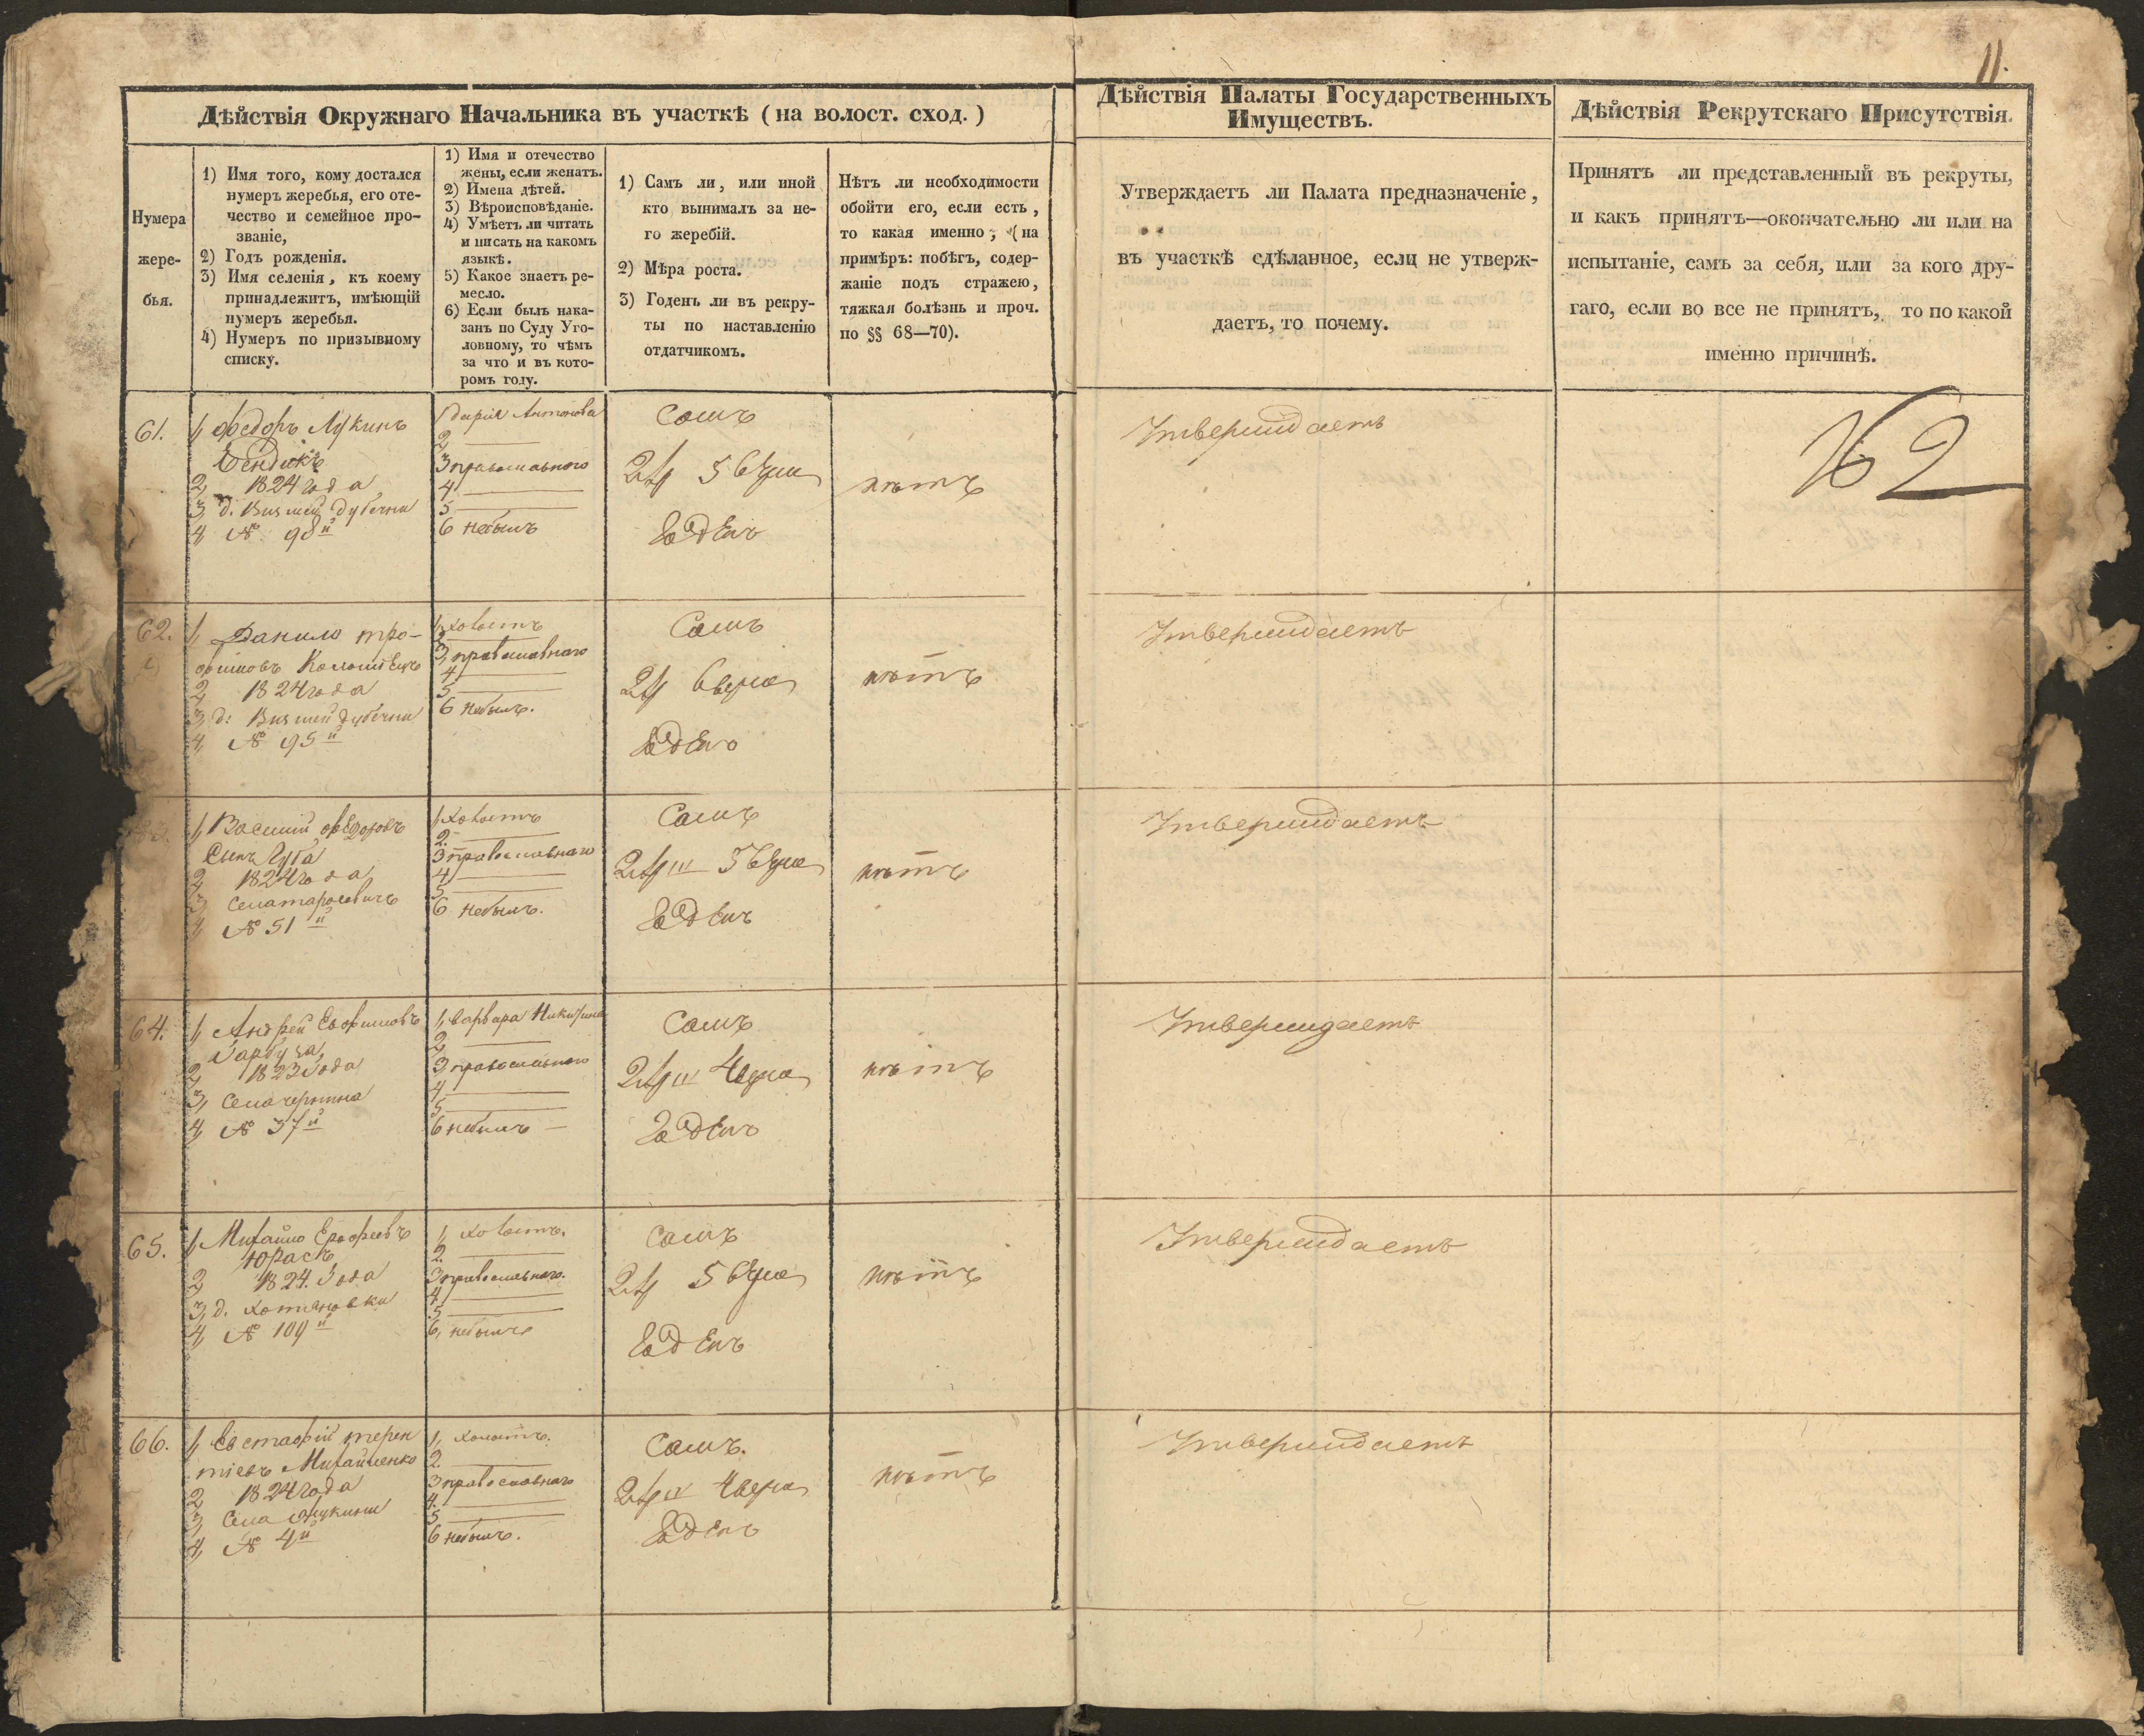 11.
Дѣйствія Окружнаго Начальника въ участкѣ (на волост. сход.)
Дѣйствія Палаты Государственныхъ
Имуществъ.
Дѣйствія Рекрутскаго Присутствія.
Нумера
жере-
бья.
1) Имя того, кому достался
нумеръ жеребья, его оте-
чество и семейное про-
званіе,
2) Годъ рожденія.
3) Имя селенія, къ коему
принадлежитъ, имѣющій
нумеръ жеребья.
4) Нумеръ по призывному
списку.
1) Имя и отечество
жены, если женатъ.
2) Имена дѣтей.
3) Вѣроисповѣданіе.
4) Умѣетъ ли читать
и писать на какомъ
языкѣ.
5) Какое знаетъ ре-
месло.
6) Если былъ нака-
занъ по Суду Уго-
ловному, то чѣмъ
за что и въ кото-
ромъ году.
1) Самъ ли, или иной
кто вынималъ за не-
го жеребій.
2) Мѣра роста.
3) Годенъ ли въ рекру-
ты по наставленію
отдатчикомъ.
Нѣтъ ли необходимости
обойти его, если есть,
то какая именно; (на
примѣръ: побѣгъ, содер-
жаніе подъ стражею,
тяжкая болѣзнь и проч.
по §§ 68—70).
Утверждаетъ ли Палата предназначеніе,
въ участкѣ сдѣланное, если не утверж-
даетъ, то почему.
Принятъ ли представленный въ рекруты,
и какъ принятъ—окончательно ли или на
испытаніе, самъ за себя, или за кого дру-
гаго, если во все не принятъ, то по какой
именно причинѣ.
61.
1, Федоръ Лукинъ
Бендикъ
2, 1824 года
3, д. Вишней Дубечни
4, № 98й
1 Дарія Антонова
2,
3 православнаго
4
5
6 небылъ
Самъ
2 ар 5 вер
Годенъ
нѣтъ
Утверждаетъ
62.
1, Данило Тро-
фимовъ Коломіецъ
2, 1824 года
3, д: Вишней Дубечни
4, № 95й
1, холостъ
2
3, православнаго
4
5
6 небылъ.
Самъ
2 ар 6 вер
Годенъ
нѣтъ
Утверждаетъ
1, Василій Федоровъ
Сынъ Губа
2, 1824 года
3, Села Тарасовичъ
4, № 51й
1, Холостъ
2.
3 православнаго
4
5
6 небылъ.
Самъ
2 ар 5 вер
Годенъ
нѣтъ
Утверждаетъ
64.
1, Андрей Евфимовъ
Гарбуза
2, 1823 года
3, Села Чернина
4, № 37й
1, Варвара Никитина
2
3 православнаго
4
5
6 небылъ
Самъ
2 ар 4 вер
Годенъ
нѣтъ
Утверждаетъ
65.
1, Михайло Ерофеевъ
Юрасъ
2, 1824. года
3, д. Хотяновки
4, № 109й
1, Холостъ.
2.
3 православнаго.
4
5
6, небылъ
Самъ
2 ар 5 вер
Годенъ
нѣтъ
Утверждаетъ
66.
1, Евстафій Терен
тіевъ Михайленко
2, 1824 года
3, Села
4, № 4й
1, Холостъ.
2.
3 православнаго
4.
5
6 небылъ.
Самъ.
2 ар 4 вер
Годенъ
нѣтъ
Утверждаетъ